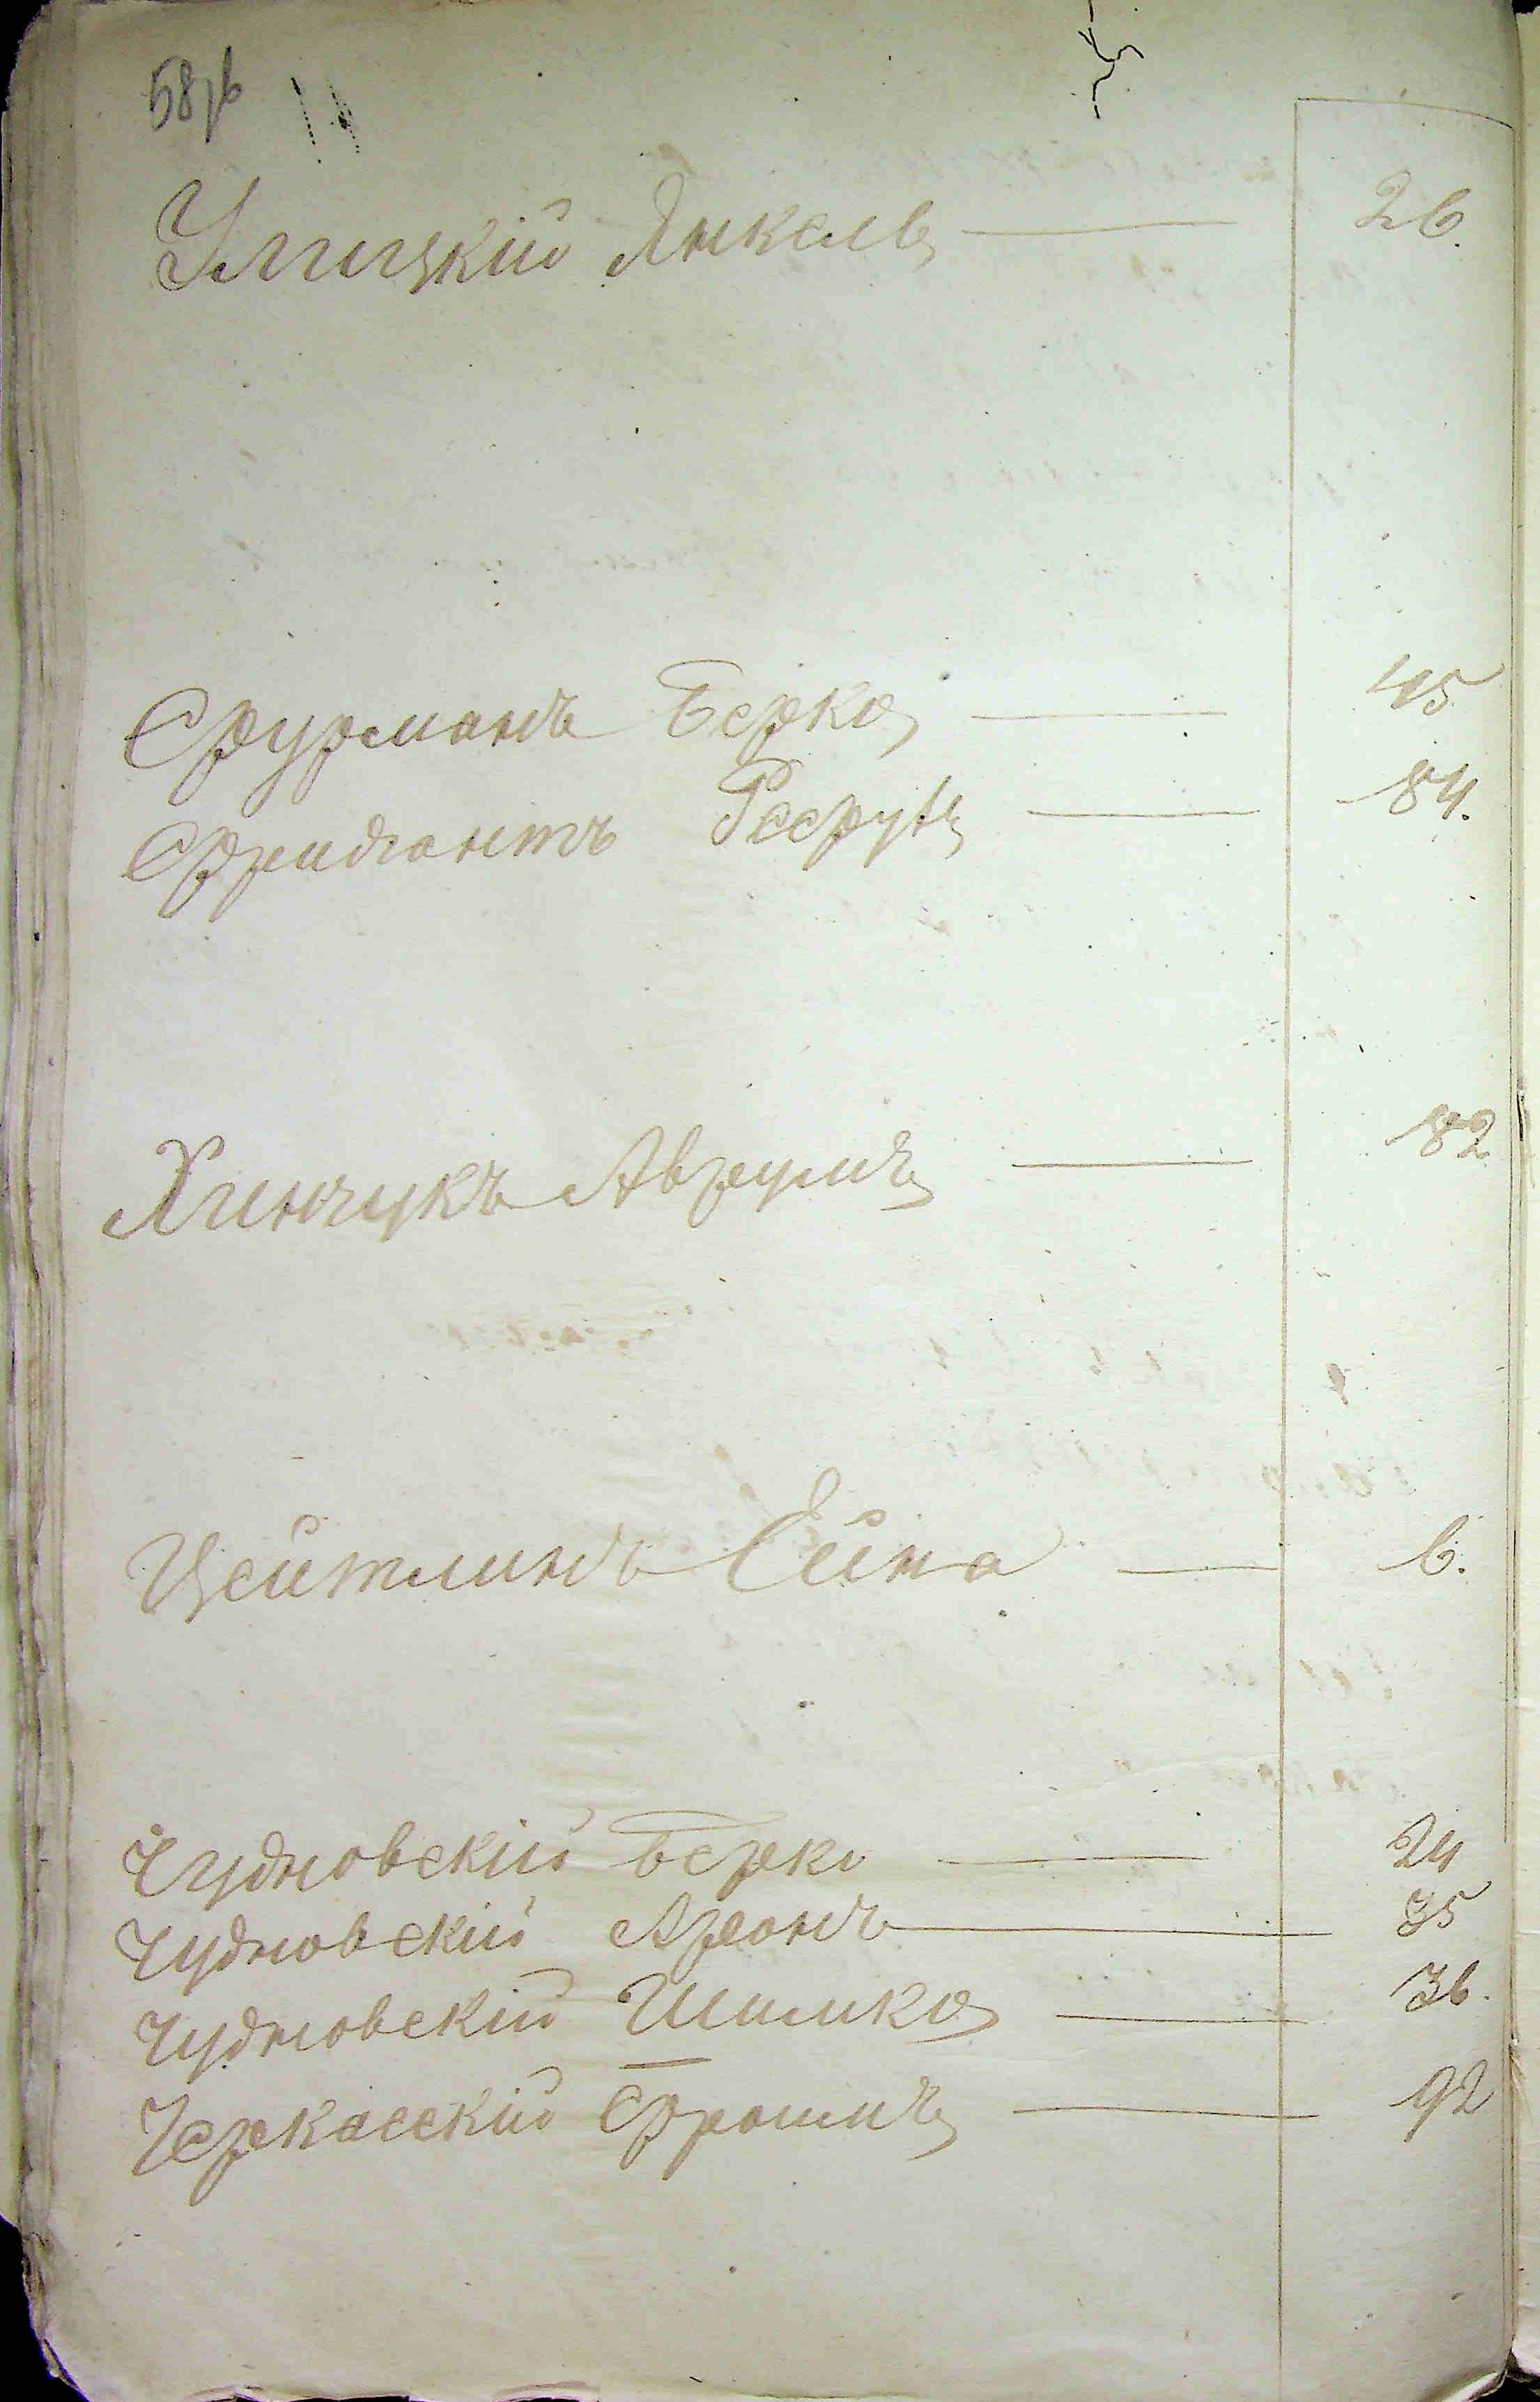 58/б
Улицкій Янкель — 26.
Фурманъ Берко — 45
Фридантъ — 84.
Хинчукъ Аврумъ — 82
Цейтлинъ Ейна — 6.
Чудновскій Берко — 24
Чудновскій Аронъ — 35
Чудновскій Шимко — 36.
Черкасскій Фроимъ — 92